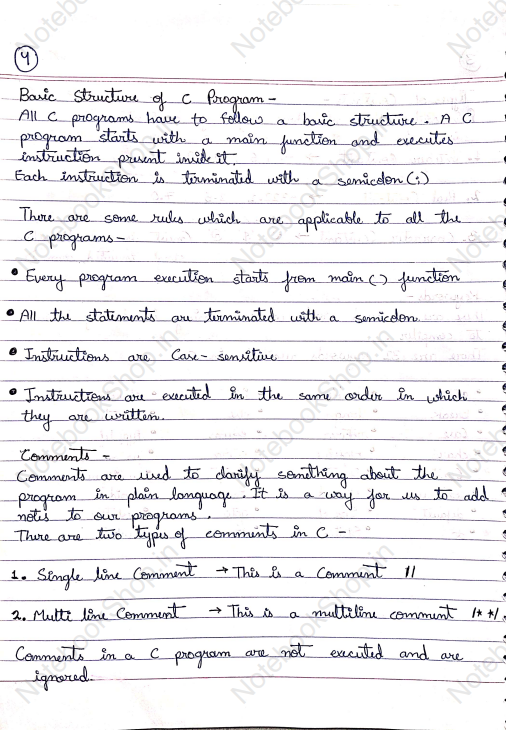 4
Basic Structure of C Program -
All C programs have to follow a basic structure. A C
program starts with a main function and executes
instruction present inside it.
Each instruction is terminated with a semicolon (;)
There are some rules which are applicable to all the
C programs -
• Every program execution starts from main () function
• All the statements are terminated with a semicolon
• Instructions are Case-sensitive
• Instructions are executed in the same order in which
they are written.
Comments -
Comments are used to clarify something about the
program in plain language. It is a way for us to add
notes to our programs.
There are two types of comments in C -
1. Single line Comment → This is a Comment //
2. Multi line Comment → This is a multiline comment /* */.
Comments in a C program are not executed and are
ignored.
NotebookShop.in